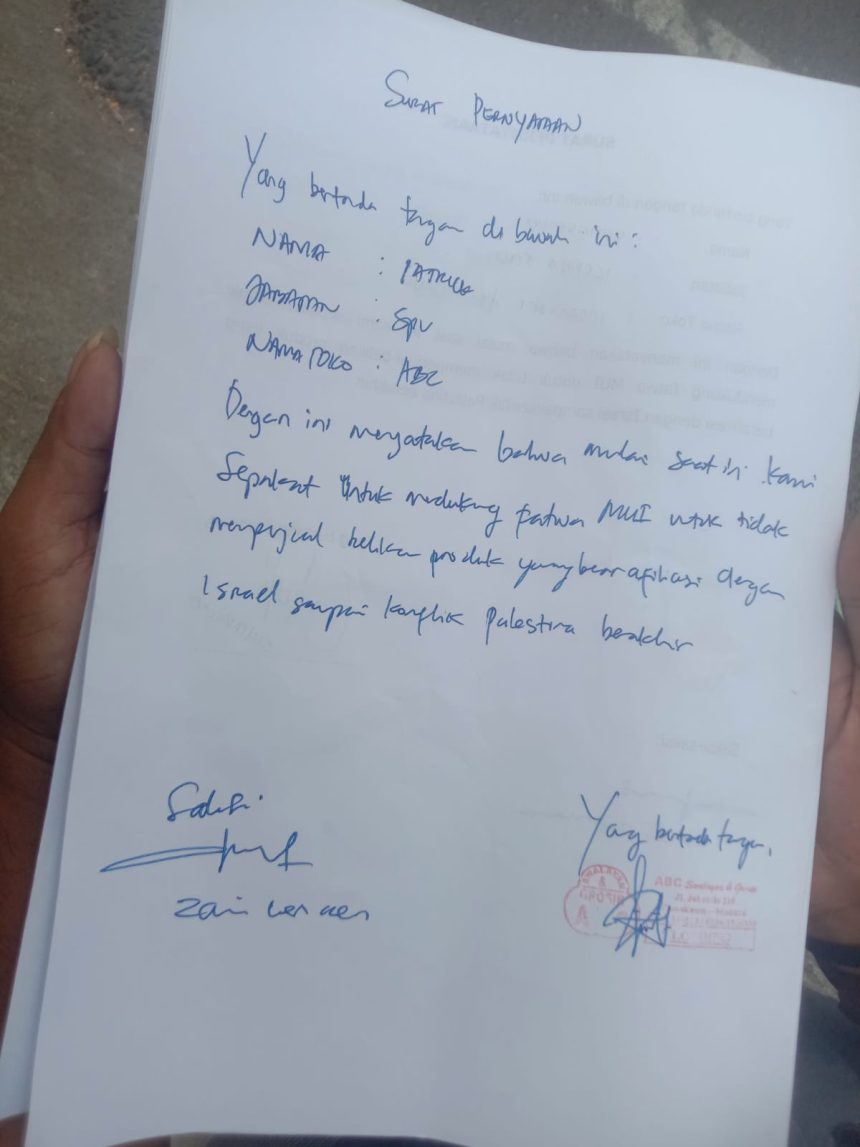 SURAT PERNYATAAN
Yang bertanda tangan di bawah ini :
NAMA : PATRICK
JABATAN : SPV
NAMA TOKO : ABC
Dengan ini menyatakan bahwa mulai saat ini kami
Sepakat untuk mendukung fatwa MUI untuk tidak
belikan produk yang berafiliasi dengan
Israel sampai konflik Palestina berakhir
Saksi
Yang bertanda tangan,
Zain
GROSIR
ABC